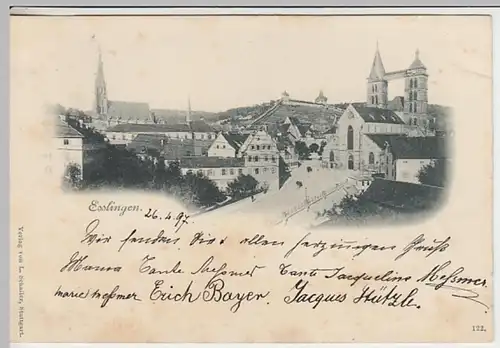 Esslingen. 26.4.97.
Wir senden Dir allen herzinnigen Gruß
Mama Tante Messmer Tante Jacqueline Messmer.
Marie Messmer Erich Bayer. Jacques Stützle.
Verlag von L. Schaller, Stuttgart.
122.